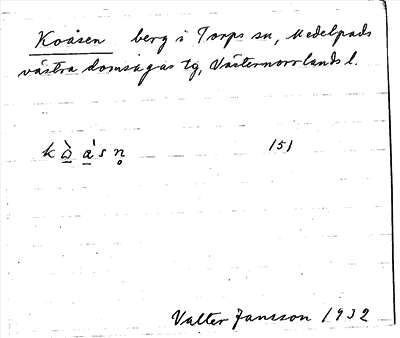 Koåsen berg i Torps sn, Medelpads
västra domsagas tg, Västernorrlands l.
k ò̱ a̱̍ s n̥ 151
Valter Jansson 1932